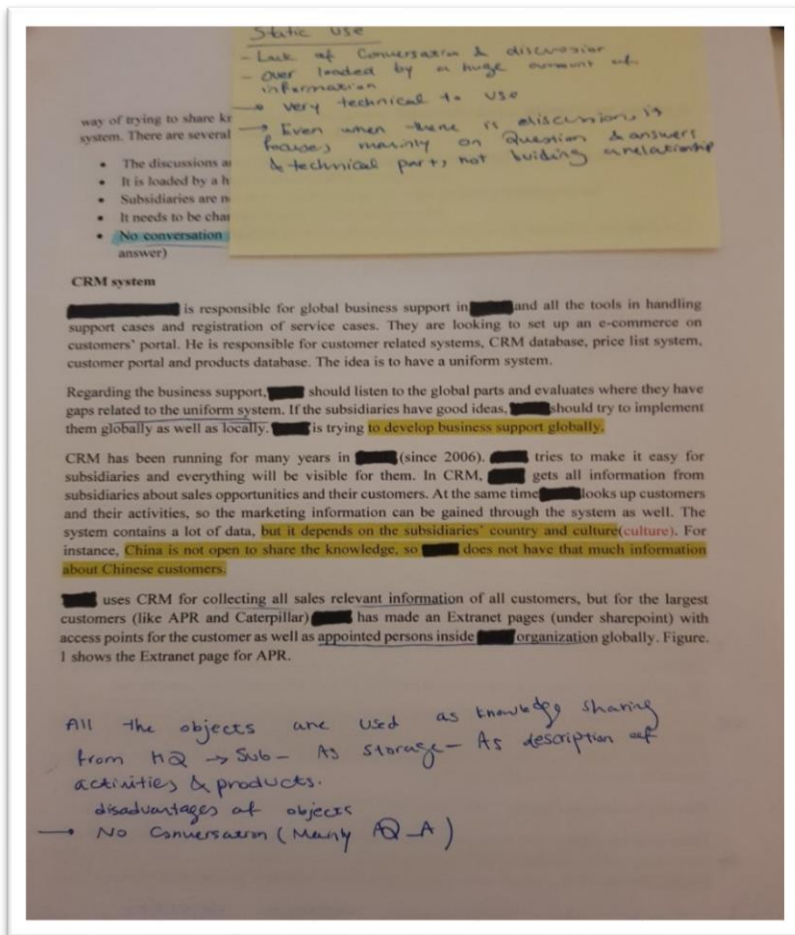 Static use
- Lack of Conversation & discussion
- over loaded by a huge amount of
information
→ very technical to use
→ Even when there is discussion, is
focuses mainly on Question & answers
& technical part, not buiding a relationship
way of trying to share kr
system. There are several
• The discussions a
• It is loaded by a h
• Subsidiaries are n
• It needs to be char
• No conversation
answer)
CRM system
is responsible for global business support in and all the tools in handling
support cases and registration of service cases. They are looking to set up an e-commerce on
customers' portal. He is responsible for customer related systems, CRM database, price list system,
customer portal and products database. The idea is to have a uniform system.
Regarding the business support, should listen to the global parts and evaluates where they have
gaps related to the uniform system. If the subsidiaries have good ideas, should try to implement
them globally as well as locally. is trying to develop business support globally.
CRM has been running for many years in (since 2006). tries to make it easy for
subsidiaries and everything will be visible for them. In CRM, gets all information from
subsidiaries about sales opportunities and their customers. At the same time looks up customers
and their activities, so the marketing information can be gained through the system as well. The
system contains a lot of data, but it depends on the subsidiaries' country and culture(culture). For
instance, China is not open to share the knowledge, so does not have that much information
about Chinese customers.
uses CRM for collecting all sales relevant information of all customers, but for the largest
customers (like APR and Caterpillar) has made an Extranet pages (under sharepoint) with
access points for the customer as well as appointed persons inside organization globally. Figure.
1 shows the Extranet page for APR.
All the objects are used as knowledge sharing
from HQ → Sub - As storage - As description of
activities & products.
disadvantages of objects
→ No Conversation (Mainly Q-A)